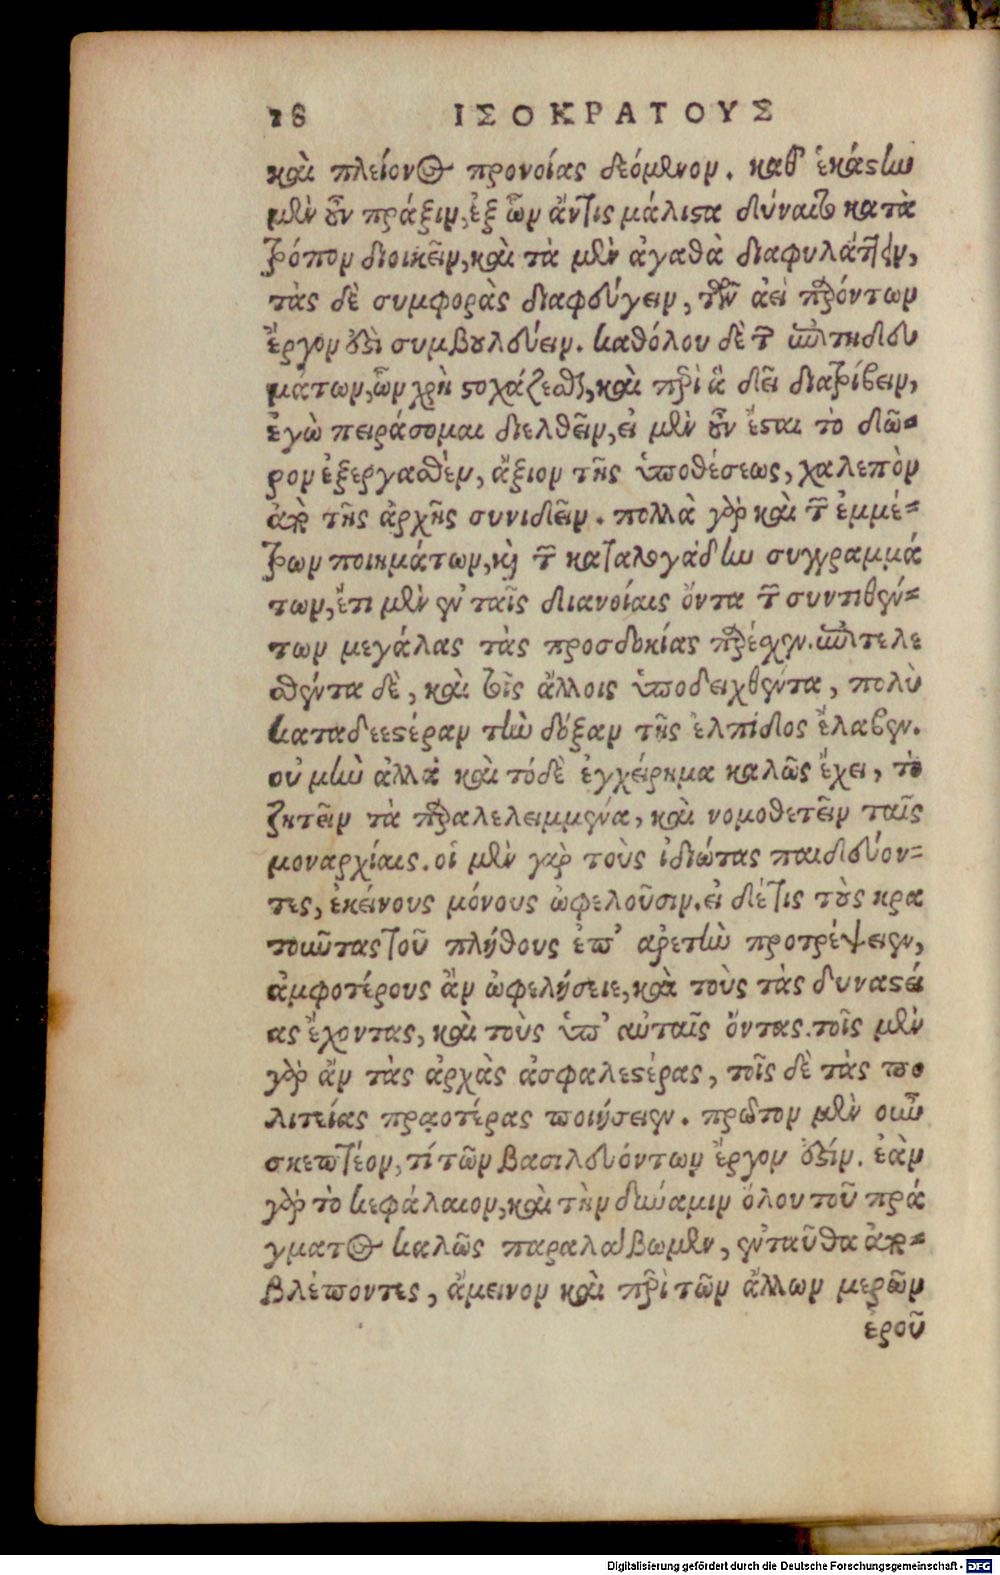 18 ΙΣΟΚΡΑΤΟΥΣ
καὶ πλείονος προνοίας δεόμενον. καθ' ἑκάστην
μὲν οὖν πρᾶξιν, ἐξ ὧν ἄν τις μάλιστα δύναιτο κατὰ
τρόπον διοικεῖν, καὶ τὰ μὲν ἀγαθὰ διαφυλάττειν,
τὰς δὲ συμφορὰς διαφεύγειν, τῶν ἀεὶ παρόντων
ἔργον ἐστὶ συμβουλεύειν. καθόλου δὲ τῶν ἐπιτηδευ
μάτων, ὧν χρὴ στοχάζεσθαι, καὶ περὶ ἃ δεῖ διατρίβειν,
ἐγὼ πειράσομαι διελθεῖν, εἰ μὲν οὖν ἔσται τὸ δῶ-
ρον ἐξεργασθὲν, ἄξιον τῆς ὑποθέσεως, χαλεπὸν
ἀπὸ τῆς ἀρχῆς συνιδεῖν. πολλὰ γὰρ καὶ τῶν ἐμμέ-
τρων ποιημάτων, καὶ τῶν καταλογάδην συγγραμμά
των, ἔτι μὲν ἐν ταῖς διανοίαις ὄντα τῶν συντιθέν-
των μεγάλας τὰς προσδοκίας παρέσχεν. ἐπιτελε
σθέντα δὲ, καὶ τοῖς ἄλλοις ὑποδειχθέντα, πολὺ
καταδεεστέραν τὴν δόξαν τῆς ἐλπίδος ἔλαβεν.
οὐ μὴν ἀλλὰ καὶ τόδε ἐγχείρημα καλῶς ἔχει, τὸ
ζητεῖν τὰ παραλελειμμένα, καὶ νομοθετεῖν ταῖς
μοναρχίαις. οἱ μὲν γὰρ τοὺς ἰδιώτας παιδεύον-
τες, ἐκείνους μόνους ὠφελοῦσιν. εἰ δέ τις τοὺς κρα
τοῦντας τοῦ πλήθους ἐπ' ἀρετὴν προτρέψειεν,
ἀμφοτέρους ἂν ὠφελήσειε, καὶ τοὺς τὰς δυναστεί
ας ἔχοντας, καὶ τοὺς ὑπ' αὐταῖς ὄντας. τοῖς μὲν
γὰρ ἂν τὰς ἀρχὰς ἀσφαλεστέρας, τοῖς δὲ τὰς πο
λιτείας πραοτέρας ποιήσειεν. πρῶτον μὲν οὖν
σκεπτέον, τί τῶν βασιλευόντων ἔργον ἐστίν. ἐὰν
γὰρ τὸ κεφάλαιον, καὶ τὴν δύναμιν ὅλου τοῦ πρά
γματος καλῶς παραλάβωμεν, ἐνταῦθα ἀπο-
βλέποντες, ἄμεινον καὶ περὶ τῶν ἄλλων μερῶν
ἐροῦ
Digitalisierung gefördert durch die Deutsche Forschungsgemeinschaft - DFG